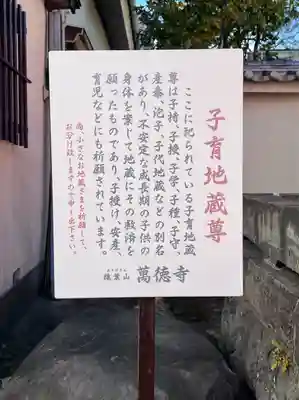 子育地蔵尊
ここに祀られている子育地蔵
尊は子持、子授、子学、子種、子守、
産泰、泡子、子代地蔵などの別名
があり、不安定な成長期の子供の
身体を案じて地蔵にその救済を
願ったものであり、子授け、安産、
育児などにも祈願されています。
尚、小さなお地蔵さまを祈願して、
お分け致しますので申し出下さい。
萬徳寺